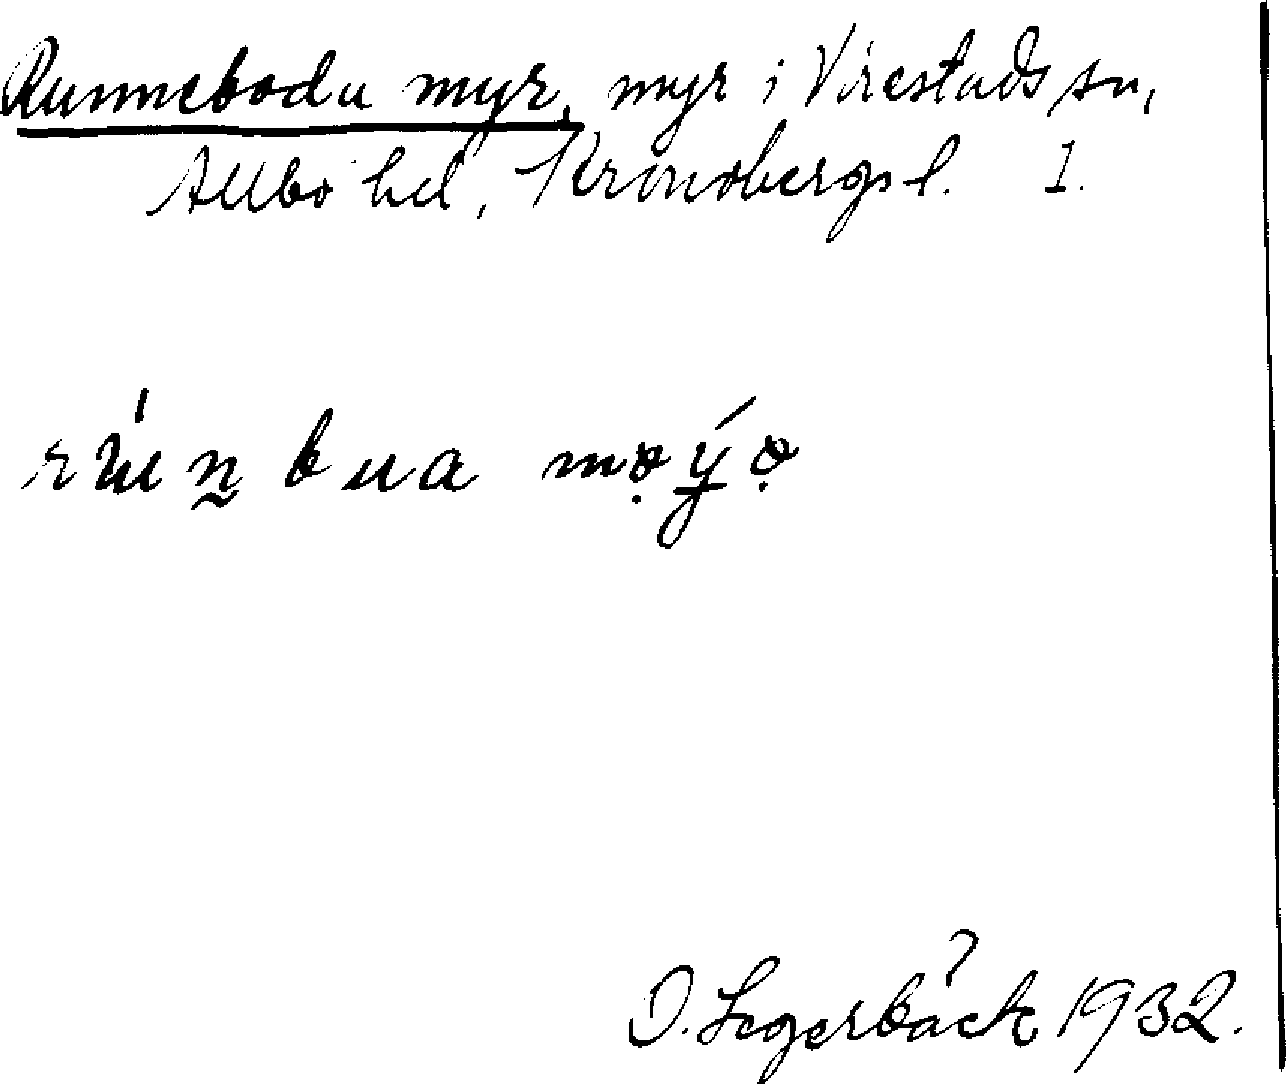 Runneboda myr, myr i Virestads sn,
Allbo hd, Kronobergs l. 1.
O. Segerbäck 1932.